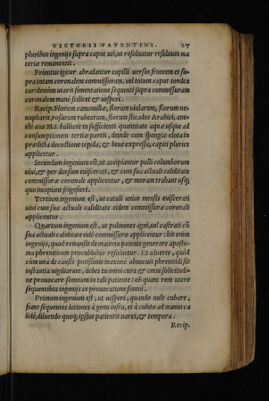 VICTORII FAVENTINI. 27
pluribus ingenijs supra caput uti, ut resoluatur residuum ma
teriæ remanentis.
Primùm igitur abradantur capilli uersus frontem et su
pra totam coronalem commissuram, uel totum caput tonda
tur: deinim utere sementatione sequenti supra commissuram
coronalem mane scilicet & uesperi.
Recip. Florum camomillæ, florum uiolarum, florum ne
nupharis, rosarum rubearum, florum sticados Arabici, aneti
ana Ma. bulliant in sufficienti quantitate aquæ usque ad
consumptionem tertiæ partis, deinde cum spongia eleuata
prædicta decoctione tepida, & bene expressa, capiti pluries
applicetur.
Secundum ingenium est, ut accipiantur pulli columborum
uiui, & per dorsum euiscerati, & cum sua actuali caliditate
commissuræ coronali applicentur, & moram trahant usq;
quo incipiant frigefieri.
Tertium ingenium est, ut catuli unius mensis euiscerati
uiui cum sua actuali caliditate eidem commissuræ coronali
applicentur.
Quartum ingenium est, ut pulmones agni, uel castrati cū
sua actuali caliditate eidē commissuræ applicentur: his enim
ingenijs, quod remansit de materia potente generare aposte
ma phreniticum proculdubio resoluetur. Et aduerte, quòd
cum una de causis potissimis maximè obnoxijs phreniticis sit
instantia uigiliarum, debes tu omni cura & omni solicitudi-
ne prouocare somnum in tali patiente: ob quam rem utere
sequentibus ingenijs in prouocatione somni.
Primum ingenium est, ut uesperi, quando uult cubare,
fiant sequentes lotiones à genu infrà, et à cubito ad manus ca
lidè, diluendo quoq; ipsius patientis nares, & tempora.
Recip.